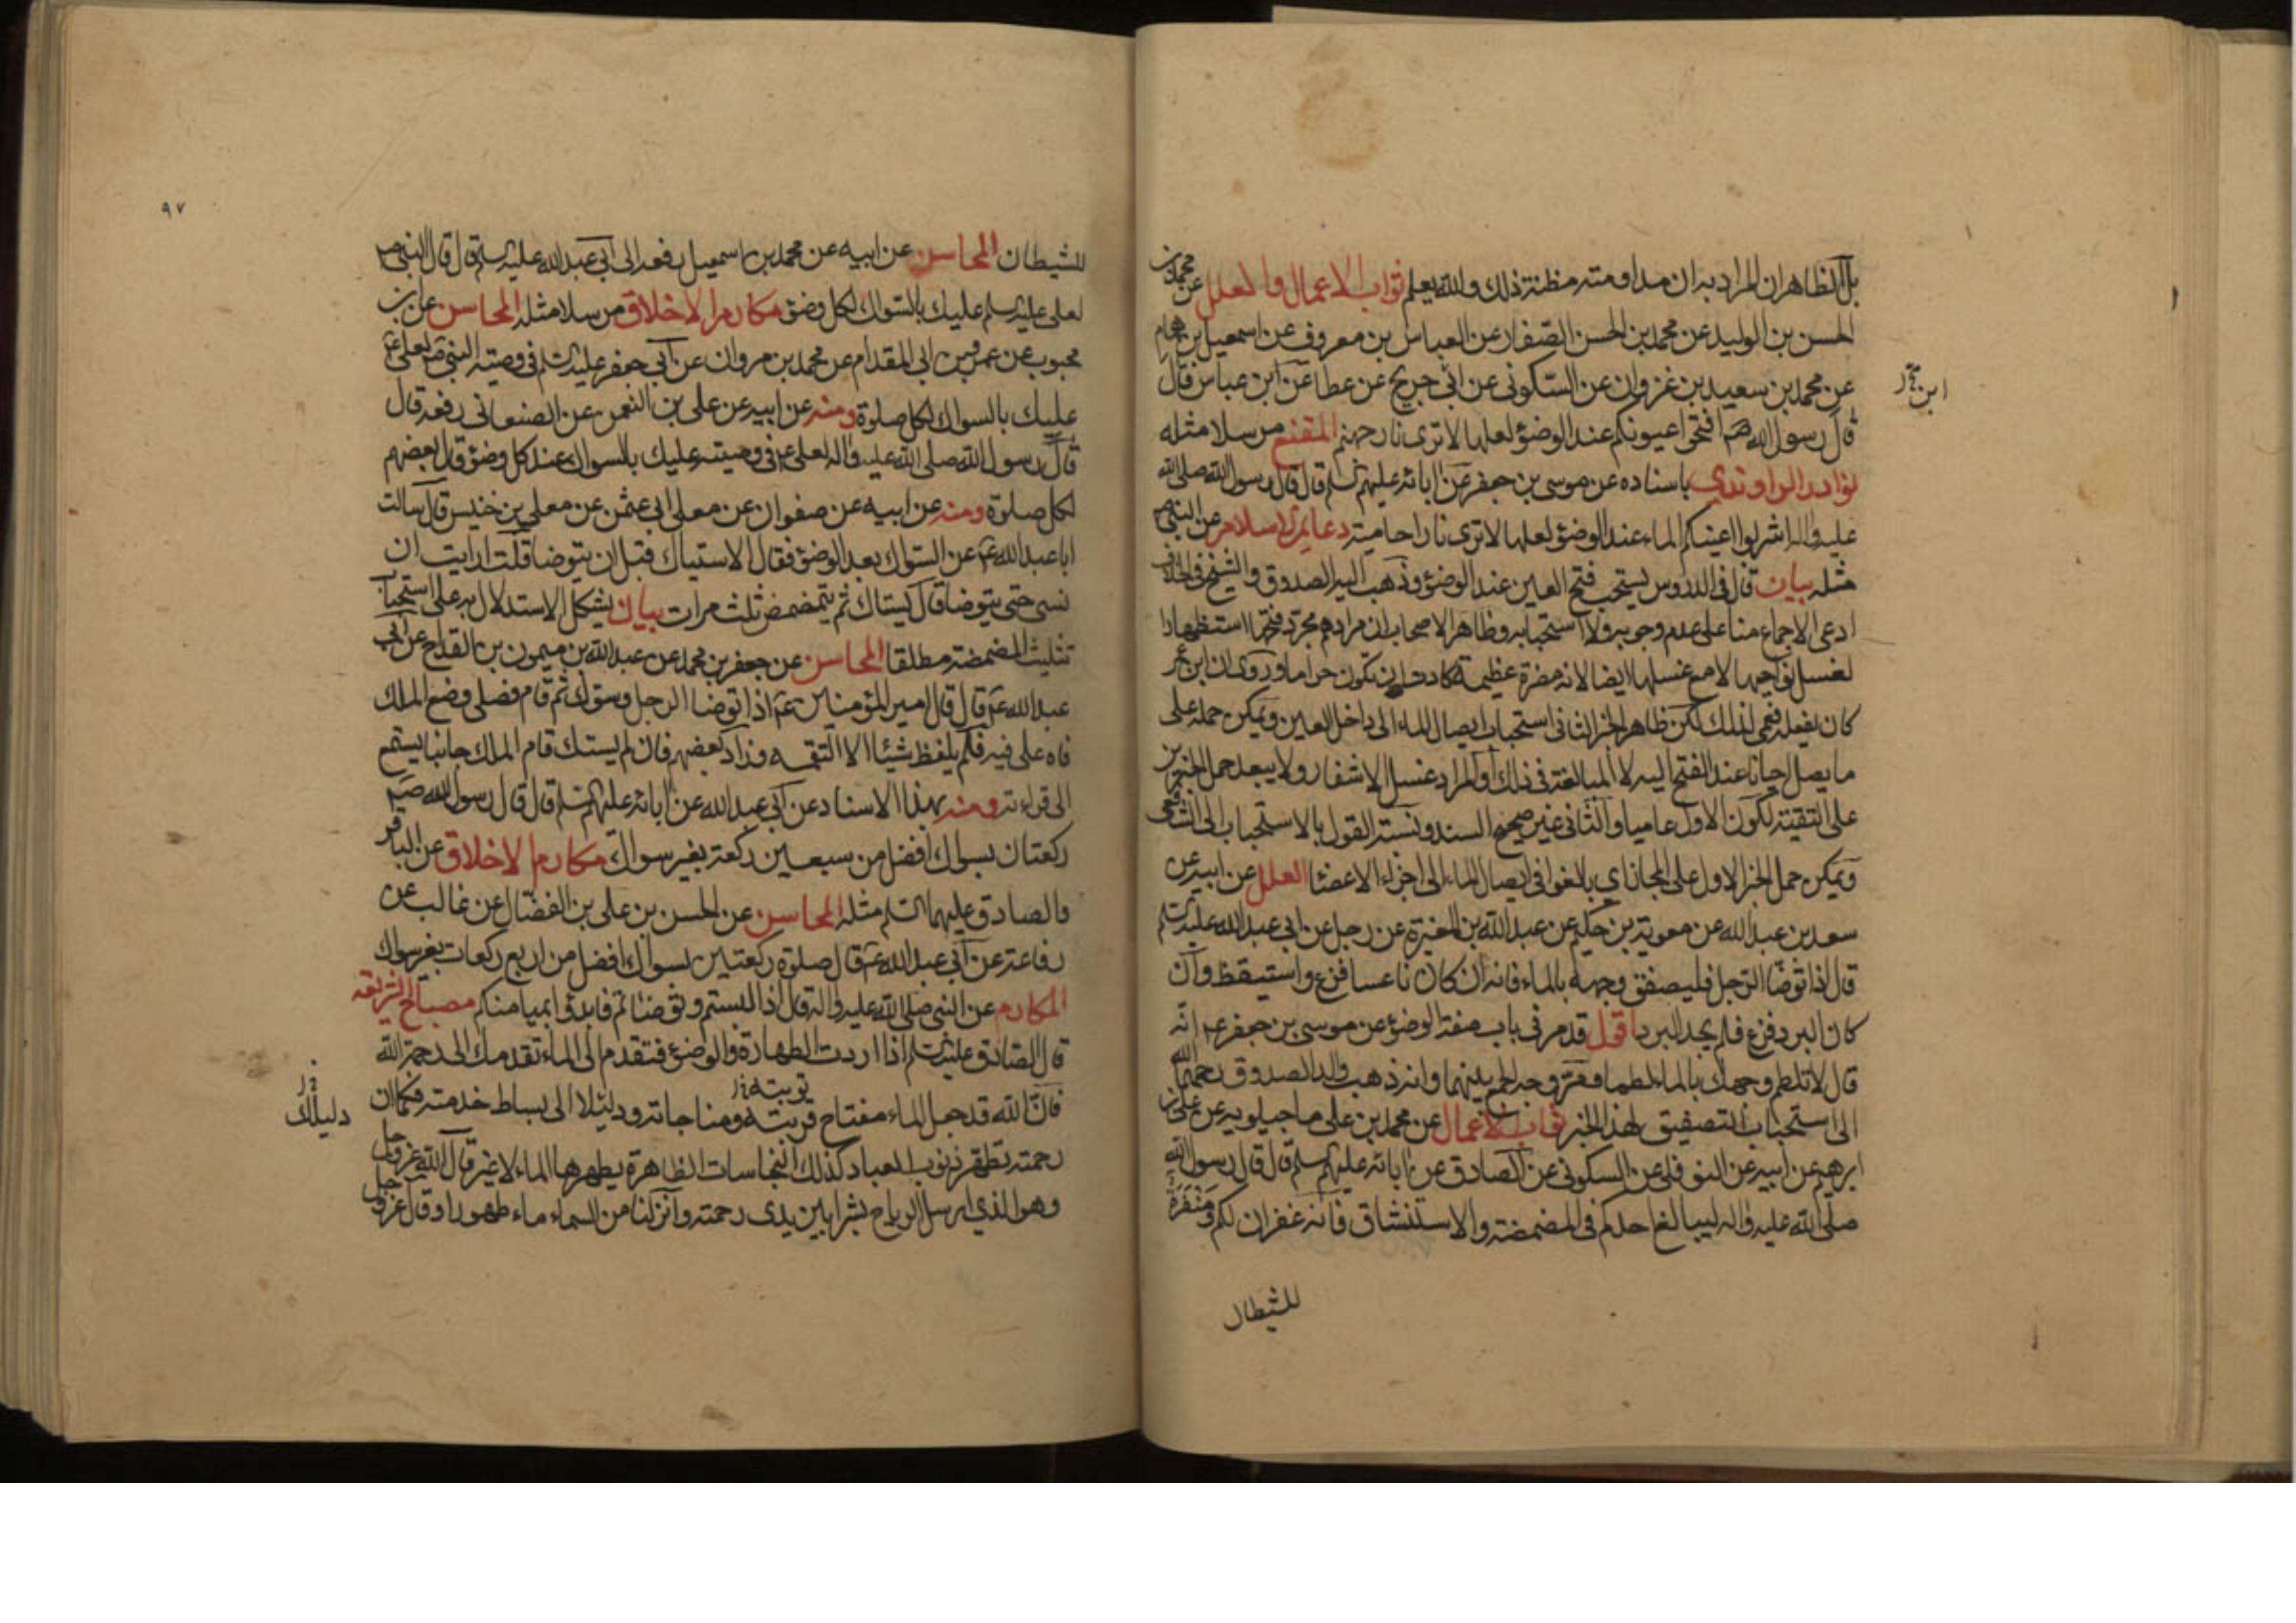 بل الظاهر ان المراد به ان مداومته مظنة ذلك والله يعلم ثواب الاعمال والعلل عن محمد بن
الحسن بن الوليد عن محمد بن الحسن الصفار عن العباس بن معروف عن اسمعيل بن همام
عن محمد بن سعيد بن غزوان عن السكونى عن ابن جريح عن عطا عن ابن عباس قال
ابن جريح ز
قال رسول الله ص افتحوا عيونكم عند الوضوء لعلها لا ترى نار جهنم المقنع مرسلا مثله
نوادر الراوندي باسناده عن موسى بن جعفر عن ابائه عليهم السلم قال قال رسول الله صلى الله
عليه واله اشربوا اعينكم الماء عند الوضوء لعلها لا ترى نارا حامية دعايم الاسلام عن النبي ص
مثله بيان قال فى الدروس يستحب فتح العين عند الوضوء وذهب اليه الصدوق والشيخ فى الخلاف
ادعى الاجماع منا على عدم وجوبه ولا استحبابه وظاهر الاصحاب ان مرادهم مجرد فتحها استظهارا
لغسل نواحيها لا مع غسلها ايضا لانه مضرة عظيمة كادت ان تكون حراما وروى ان ابن عمر
كان يفعله فعمى لذلك لكن ظاهر الخبر الثانى استحباب ايصال الماء الى داخل العين ويمكن حمله على
ما يصل احيانا عند الفتح اليه لا المبالغة فى ذلك او المراد غسل الاشفار ولا يبعد حمل الخبرين
على التقية لكون الاول عاميا والثانى غير صحيح السند ونسبة القول بالاستحباب الى الشافعى
ويمكن حمل الخبر الاول على المجاز اي بالغوا فى ايصال الماء الى اجزاء الاعضا العلل عن ابيه عن
سعد بن عبد الله عن معوية بن حكيم عن عبد الله بن المغيرة عن رجل عن ابي عبد الله عليه السلم
قال اذا توضا الرجل فليصفق وجهه بالماء فانه ان كان ناعسا فزع واستيقظ وان
كان البرد فزع فلم يجد البرد اقول قد مر فى باب صفة الوضوء عن موسى بن جعفر ع انه
قال لا تلطم وجهك بالماء لطما وقد مر وجه الجمع بينهما وانه ذهب والد الصدوق رحمهما الله
الى استحباب التصفيق لهذا الخبر ثواب الاعمال عن محمد بن على ماجيلويه عن على بن
ابرهيم عن ابيه عن النوفلى عن السكونى عن الصادق عن ابائه عليهم السلم قال قال رسول الله
صلى الله عليه واله ليبالغ احدكم فى المضمضة والاستنشاق فانه غفران لكم ومنفرة
للشيطان
٩٧
للشيطان المحاسن عن ابيه عن محمد بن اسمعيل رفعه الى ابى عبد الله عليه السلم قال قال النبى ص
لعلى عليه السلم عليك بالسواك لكل وضوء مكارم الاخلاق مرسلا مثله المحاسن عن ابن
محبوب عن عمرو بن ابى المقدام عن محمد بن مروان عن ابى جعفر عليه السلم فى وصية النبى ص لعلى ع
عليك بالسواك لكل صلوة ومنه عن ابيه عن على بن النعمن عن الصنعانى رفعه قال
قال رسول الله صلى الله عليه واله لعلى ع فى وصيته عليك بالسواك عند كل وضوء وقال بعضهم
لكل صلوة ومنه عن ابيه عن صفوان عن معلى ابى عثمن عن معلى بن خنيس قال سالت
ابا عبد الله ع عن السواك بعد الوضوء فقال الاستياك قبل ان يتوضا قلت ارايت ان
نسى حتى يتوضا قال يستاك ثم يتمضمض ثلث مرات بيان يشكل الاستدلال به على استحباب
تثليث المضمضة مطلقا المحاسن عن جعفر بن محمد عن عبد الله بن ميمون بن القداح عن ابى
عبد الله ع قال قال امير المؤمنين ع اذا توضا الرجل وسوك ثم قام فصلى وضع الملك
فاه على فيه فلم يلفظ شيئا الا التقمه وزاد بعضهم فان لم يستك قام الملك جانبا يستمع
الى قراءته ومنه بهذا الاسناد عن ابى عبد الله عن ابائه عليهم السلم قال قال رسول الله ص
ركعتان بسواك افضل من سبعين ركعة بغير سواك مكارم الاخلاق عن الباقر
والصادق عليهما السلم مثله المحاسن عن الحسن بن على بن الفضال عن غالب عن
رفاعة عن ابى عبد الله ع قال صلوة ركعتين بسواك افضل من اربع ركعات بغير سواك
المكارم عن النبى صلى الله عليه واله قال اذا لبستم وتوضاتم فابدؤا بميامنكم مصباح الشريعة
قال الصادق عليه السلم اذا اردت الطهارة والوضوء فتقدم الى الماء تقدمك الى رحمة الله
توبته ز
فان الله قد جعل الماء مفتاح قربته ومناجاته ودليلا الى بساط خدمته فكما ان
دليلك ز
رحمته تطهر ذنوب العباد كذلك النجاسات الظاهرة يطهرها الماء لا غير قال الله عز وجل
وهو الذي ارسل الرياح بشرا بين يدى رحمته وانزلنا من السماء ماء طهورا وقال عز وجل